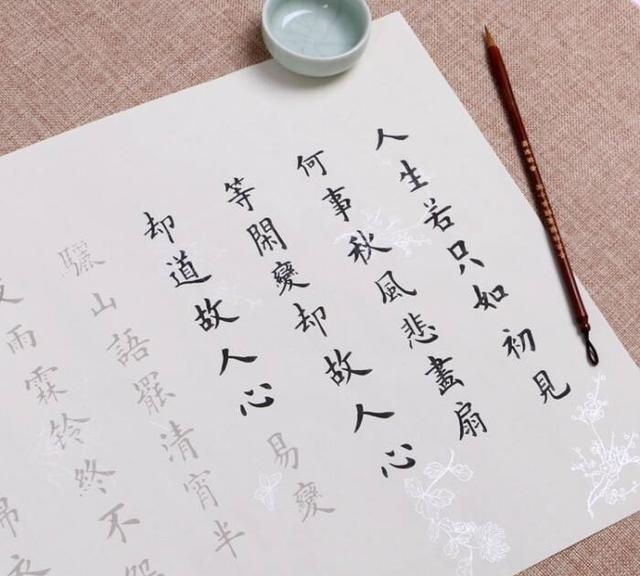 人生若只如初見
何事秋風悲畫扇
等閑變却故人心
却道故人心易變
驪山語罷清宵半
雨霖铃終不怨